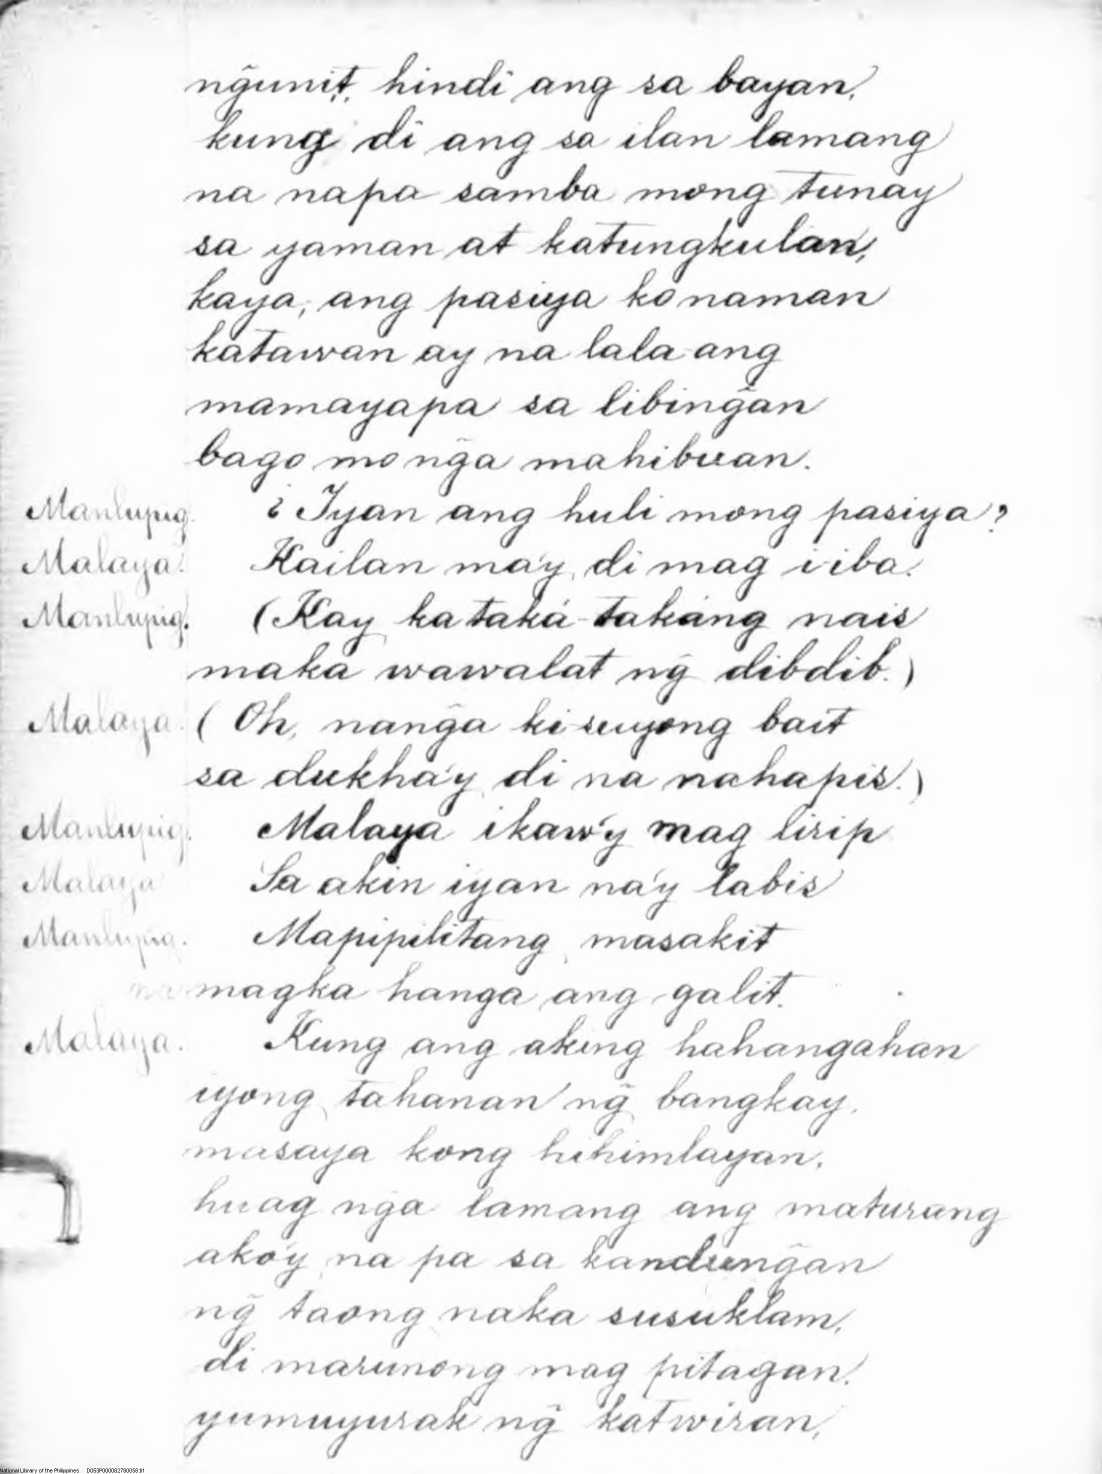 ng̃unit, hindi ang sa bayan,
kung di ang sa ilan lamang
na napa samba mong tunay
sa yaman at katungkulan,
kaya, ang pasiya ko naman
katawan ay na lala-ang
mamayapa sa libing̃an
bago mo ng̃a mahibuan.
Manlupig. ¿Iyan ang huli mong pasiya?
Malaya. Kailan ma'y di mag i-iba.
Manlupig. (Kay kataká-takáng nais
maka wawalat ng̃ dibdib.)
Malaya. (Oh, nang̃a ki-suyong bait
sa dukha'y di na nahapis.)
Manlupig. Malaya ikaw'y mag lirip
Malaya Sa akin iyan na'y labis
Manlupig. Mapipilitang masakit
na magka hanga ang galit.
Malaya. Kung ang aking hahangahan
iyong tahanan ng̃ bangkay,
masaya kong hihimlayan,
huag nga lamang ang maturang
ako'y na pa sa kandung̃an
ng̃ taong naka susuklam,
di marunong mag pitagan.
yumuyurak ng̃ katwiran,
National Library of the Philippines